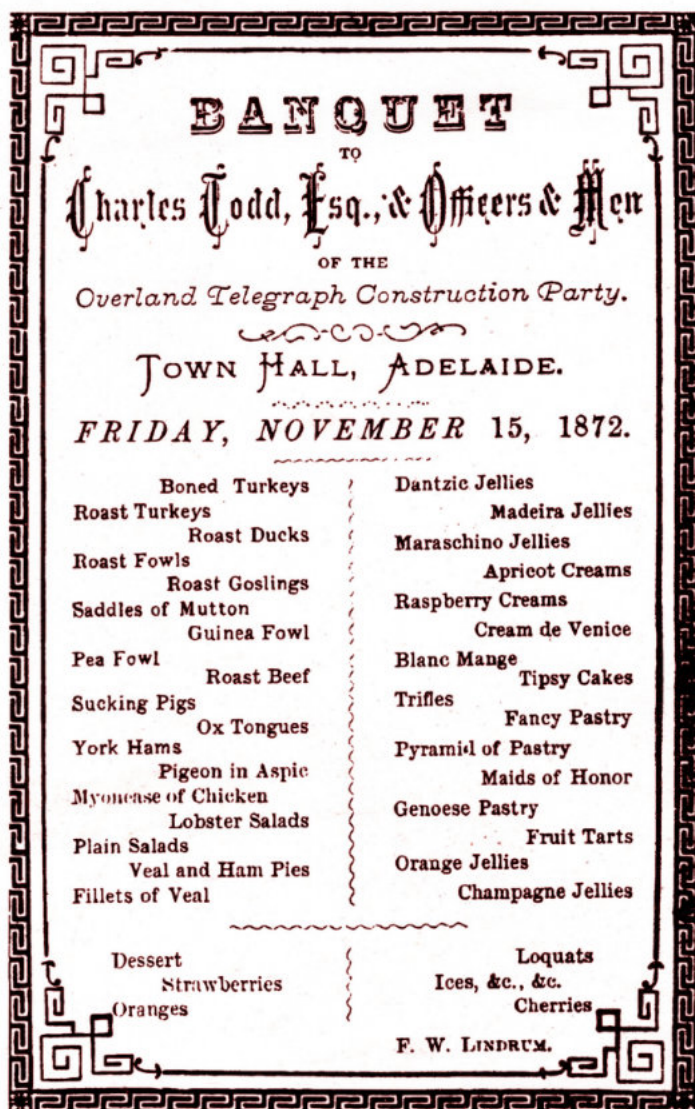 BANQUET
TO
Charles Todd, Esq., & Officers & Men
OF THE
Overland Telegraph Construction Party.
TOWN HALL, ADELAIDE.
FRIDAY, NOVEMBER 15, 1872.
Boned Turkeys
Roast Turkeys
Roast Ducks
Roast Fowls
Roast Goslings
Saddles of Mutton
Guinea Fowl
Pea Fowl
Roast Beef
Sucking Pigs
Ox Tongues
York Hams
Pigeon in Aspic
Myonease of Chicken
Lobster Salads
Plain Salads
Veal and Ham Pies
Fillets of Veal
Dantzic Jellies
Madeira Jellies
Maraschino Jellies
Apricot Creams
Raspberry Creams
Cream de Venice
Blanc Mange
Tipsy Cakes
Trifles
Fancy Pastry
Pyramid of Pastry
Maids of Honor
Genoese Pastry
Fruit Tarts
Orange Jellies
Champagne Jellies
Dessert
Strawberries
Oranges
Loquats
Ices, &c., &c.
Cherries
F. W. LINDRUM.